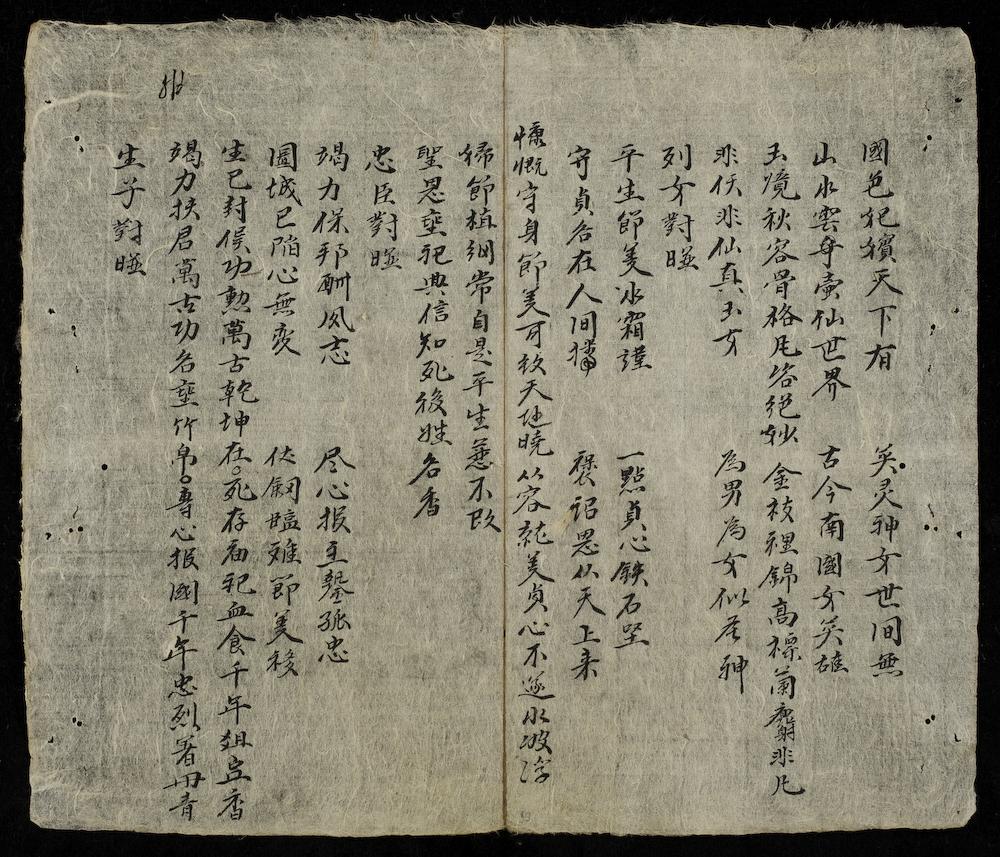 國色把擯天下有 英灵神女世间無
山水雲身壷仙世界 古今南國女英雄
玉境秋容骨格凡容絶妙 金枝裡錦高標蘭麝非凡
非仸非仙真玉女 為男為女似茖神
列女對联
平生節美冰霜謹 一點貞心鉄石坚
守貞名在人间播 褒詔恩从天上来
慷慨守身節美可教天地曉 从容就美貞心不逐水波浮
婦節植綱常自是平生蕙不改
聖恩垂祀典信知死後姓名香
忠臣對联
竭力保邦酬夙志 尽心报主罄孤忠
圖城已陷心無变 伏劒臨难節美移
生已封侯功勲萬古乾坤在 死存庙祀血食千年俎豆香
竭力扶君萬古功名垂竹帛 專心报國千年忠烈署丹青
生子對联